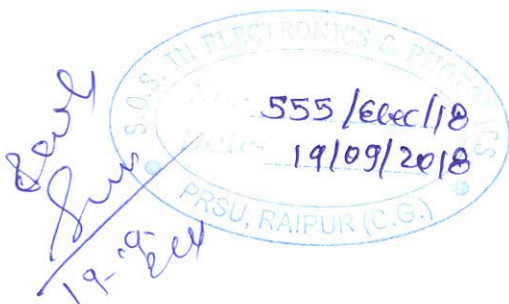 S.O.S. IN ELECTRONICS & PHOTONICS
No. 555/Elec/18
19/09/2018
PRSU, RAIPUR (C.G.)
19-9-